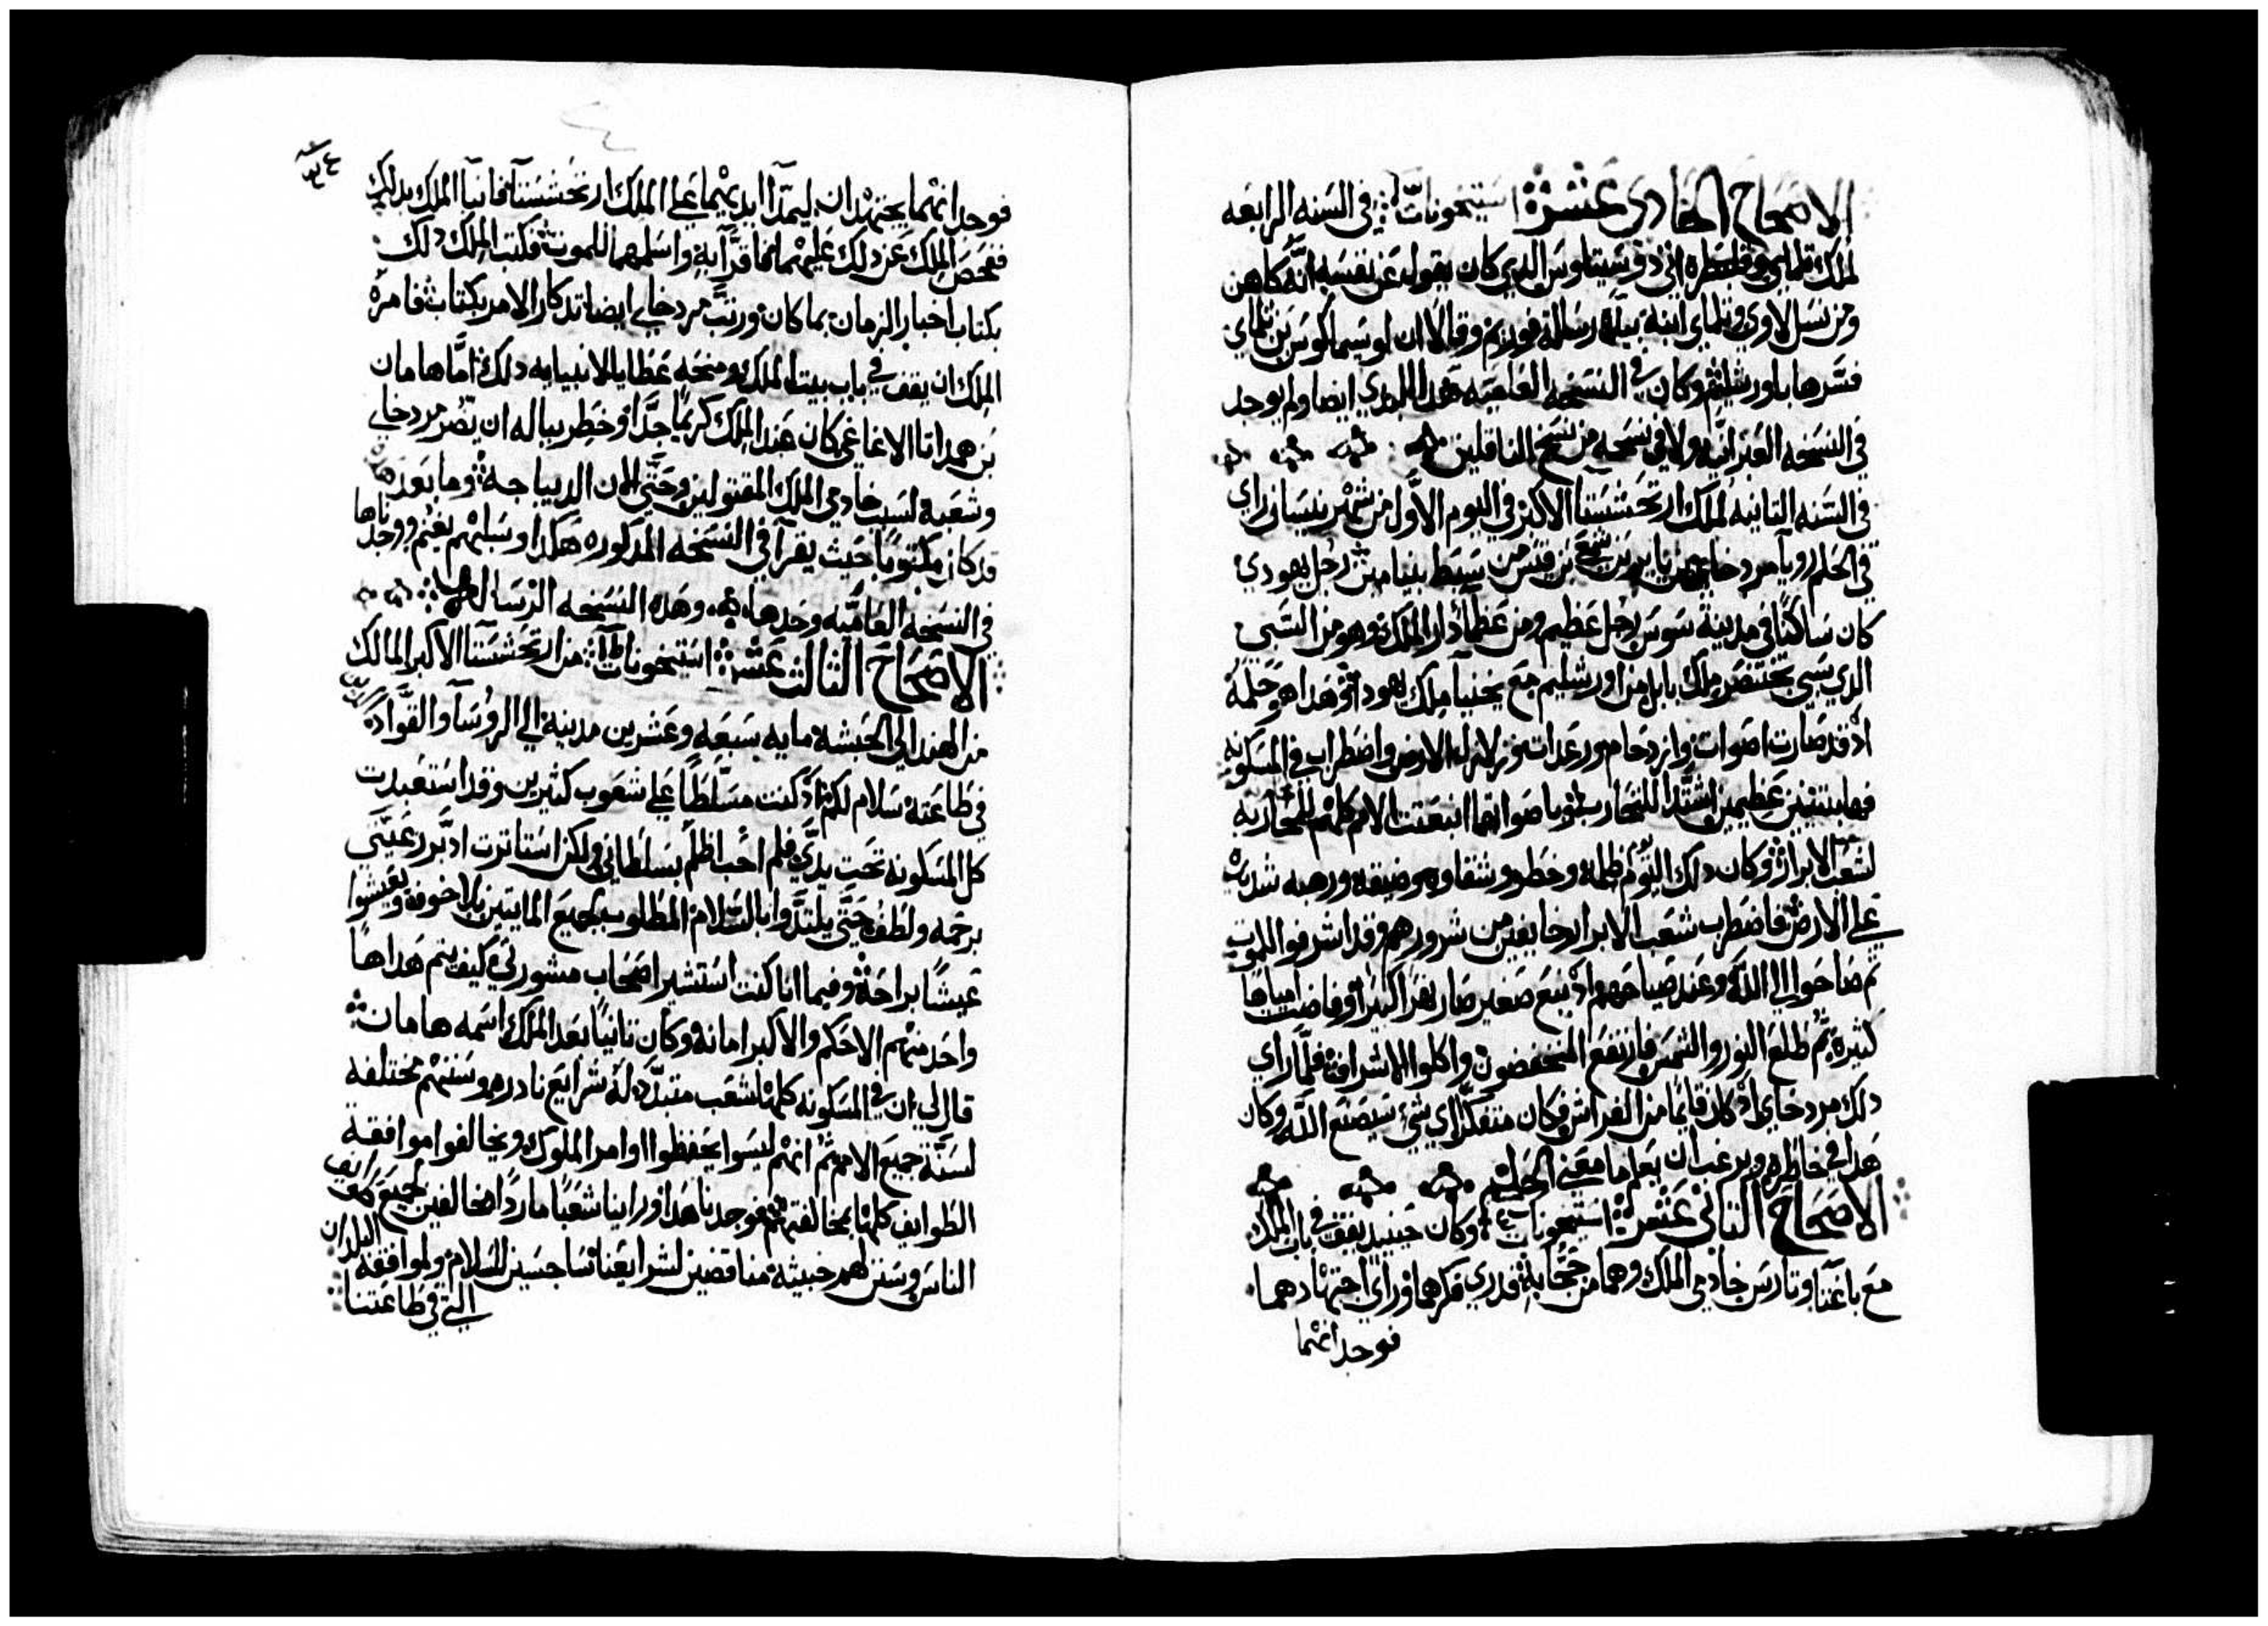 الاصحاح الحادي عشر استيخونات في السنه الرابعه
لملك تلماي وقلبطره اتي دوسيتاوس الذي كان يقول عن نفسه انه كاهن
ومن نسل لاوي وتلماي ابنه بهذه رسالة فوريم وقالا ان لوسيماكوس بن تلماي
فسرها باورشليم وكان في النسخه العاميه هذا المبدي ايضا ولم يوجد
في النسخه العبرانيه ولا في نسخه من نسخ الناقلين
في السنه الثانيه لملك ارتحششتا الاكبر في اليوم الاول من شهر نيسان راي
في الحلم رويا مردخاي بن يابر بن شمعي بن قيس من سبط بنيامين رجل يهودي
كان ساكنا في مدينة سوس رجل عظيم ومن عظماء دار الملك وهو من السبي
الذي سبي بختنصر ملك بابل من اورشليم مع يخنيا ملك يهودا وهذا هو حلمه
اذ قد صارت اصوات وازدحام ورعدات وزلازل الارض واضطراب في المسكونه
فها تنينين عظيمين اشتدا للتحارب وباصواتهما انبعثت الامم كلهم لمحاربة
لشعب الابرار وكان ذلك اليوم ظلمة وخطر وشقاوه وضيقه ورهبه شديده
علي الارض فاضطرب شعب الابرار خايفين من شرورهم وقد اشرفوا للموت
ثم صاحوا الي الله وعند صياحهم اذ نبع صغير صار نهرا كبيرا وفاضت مياها
كثيره ثم طلع النور والشمس فارتفع المنخفضون واكلوا الاشراف فلما راي
ذلك مردخاي اذ كان قائما من الفراش فكان متفكرا اي شي سيصنع الله وكان
هذا في خاطره ويرغب ان يعلم ما معني الحلم
الاصحاح الثاني عشر استيخونات وكان حينيذ يقف في باب الملك
مع باغتا وتارس خادمي الملك وهما من حجابه فدري فكرهما وراي اجتهادهما
فوجد انهما
فوجد انهما يجتهدان ليمدا ايديهما علي الملك ارتحششتا فانبا الملك بذلك
ففحص الملك عن ذلك عليهما فاقرا به واسلمهما للموت فكتب الملك ذلك
بكتاب اخبار الزمان بما كان ورتب مردخاي ايضا تذكار الامر بكتاب فامره
الملك ان يقف في باب بيت الملك ومنحه عطايا لانبيابه ذلك اما هامان
بن همداتا الاغاغي كان عند الملك كريما جدا وخطر بباله ان يضر مردخاي
وشعبه لسبب خادمي الملك المقتولين وحتي الان الديباجة وما بعدها
قد كان مكتوبا حيث يقرا في النسخه المذكوره هكذا وسلبهم يغنم ووجدناها
في النسخه العاميه وحدها وهذه النسخه الرساله
الاصحاح الثالث عشر استيخونات من ارتحششتا الاكبر المالك
من الهند الي الحبشه مايه سبعه وعشرين مدينة الي الروساء والقواد
في طاعته سلام لكم اذ كنت مسلطا علي شعوب كثيرين وقد استعبدت
كل المسكونه تحت يدي فلم احب اظلم بسلطاني ولكن استاثرت ادبر رعيتي
برحمه ولطف حتي يلتذوا بالسلام المطلوب لجميع المايتين بلا خوف ويعيشوا
عيشا براحة وفيما انا كنت استشير اصحاب مشورتي كيف يتم هذا ها
واحد منهم الاحكم والاكبر امانه وكان ثانيا بعد الملك اسمه هامان
قال لي ان في المسكونه كلها شعب متبدد له شرايع نادره وسننهم مختلفه
لسنة جميع الامم ثم انهم ليسوا يحفظوا اوامر الملوك ويخالفوا موافقة
الطوايف كلها بمخالفتهم فوجدنا هذا وراينا شعبا ماردا مخالفين جميع طوايف
الناس وسنن لهم خبيثه مناقضين لشرايعنا ساجسين للسلام ولموافقة البلدان
التي في طاعتنا